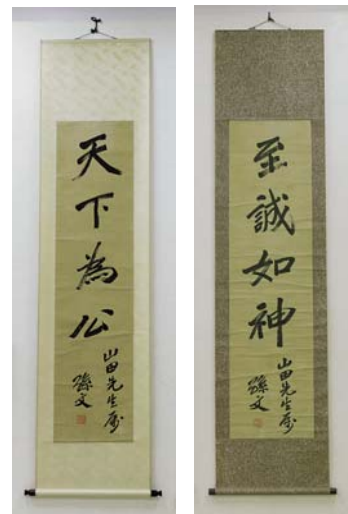 天下為公
山田先生属
孫文
至誠如神
山田先生属
孫文